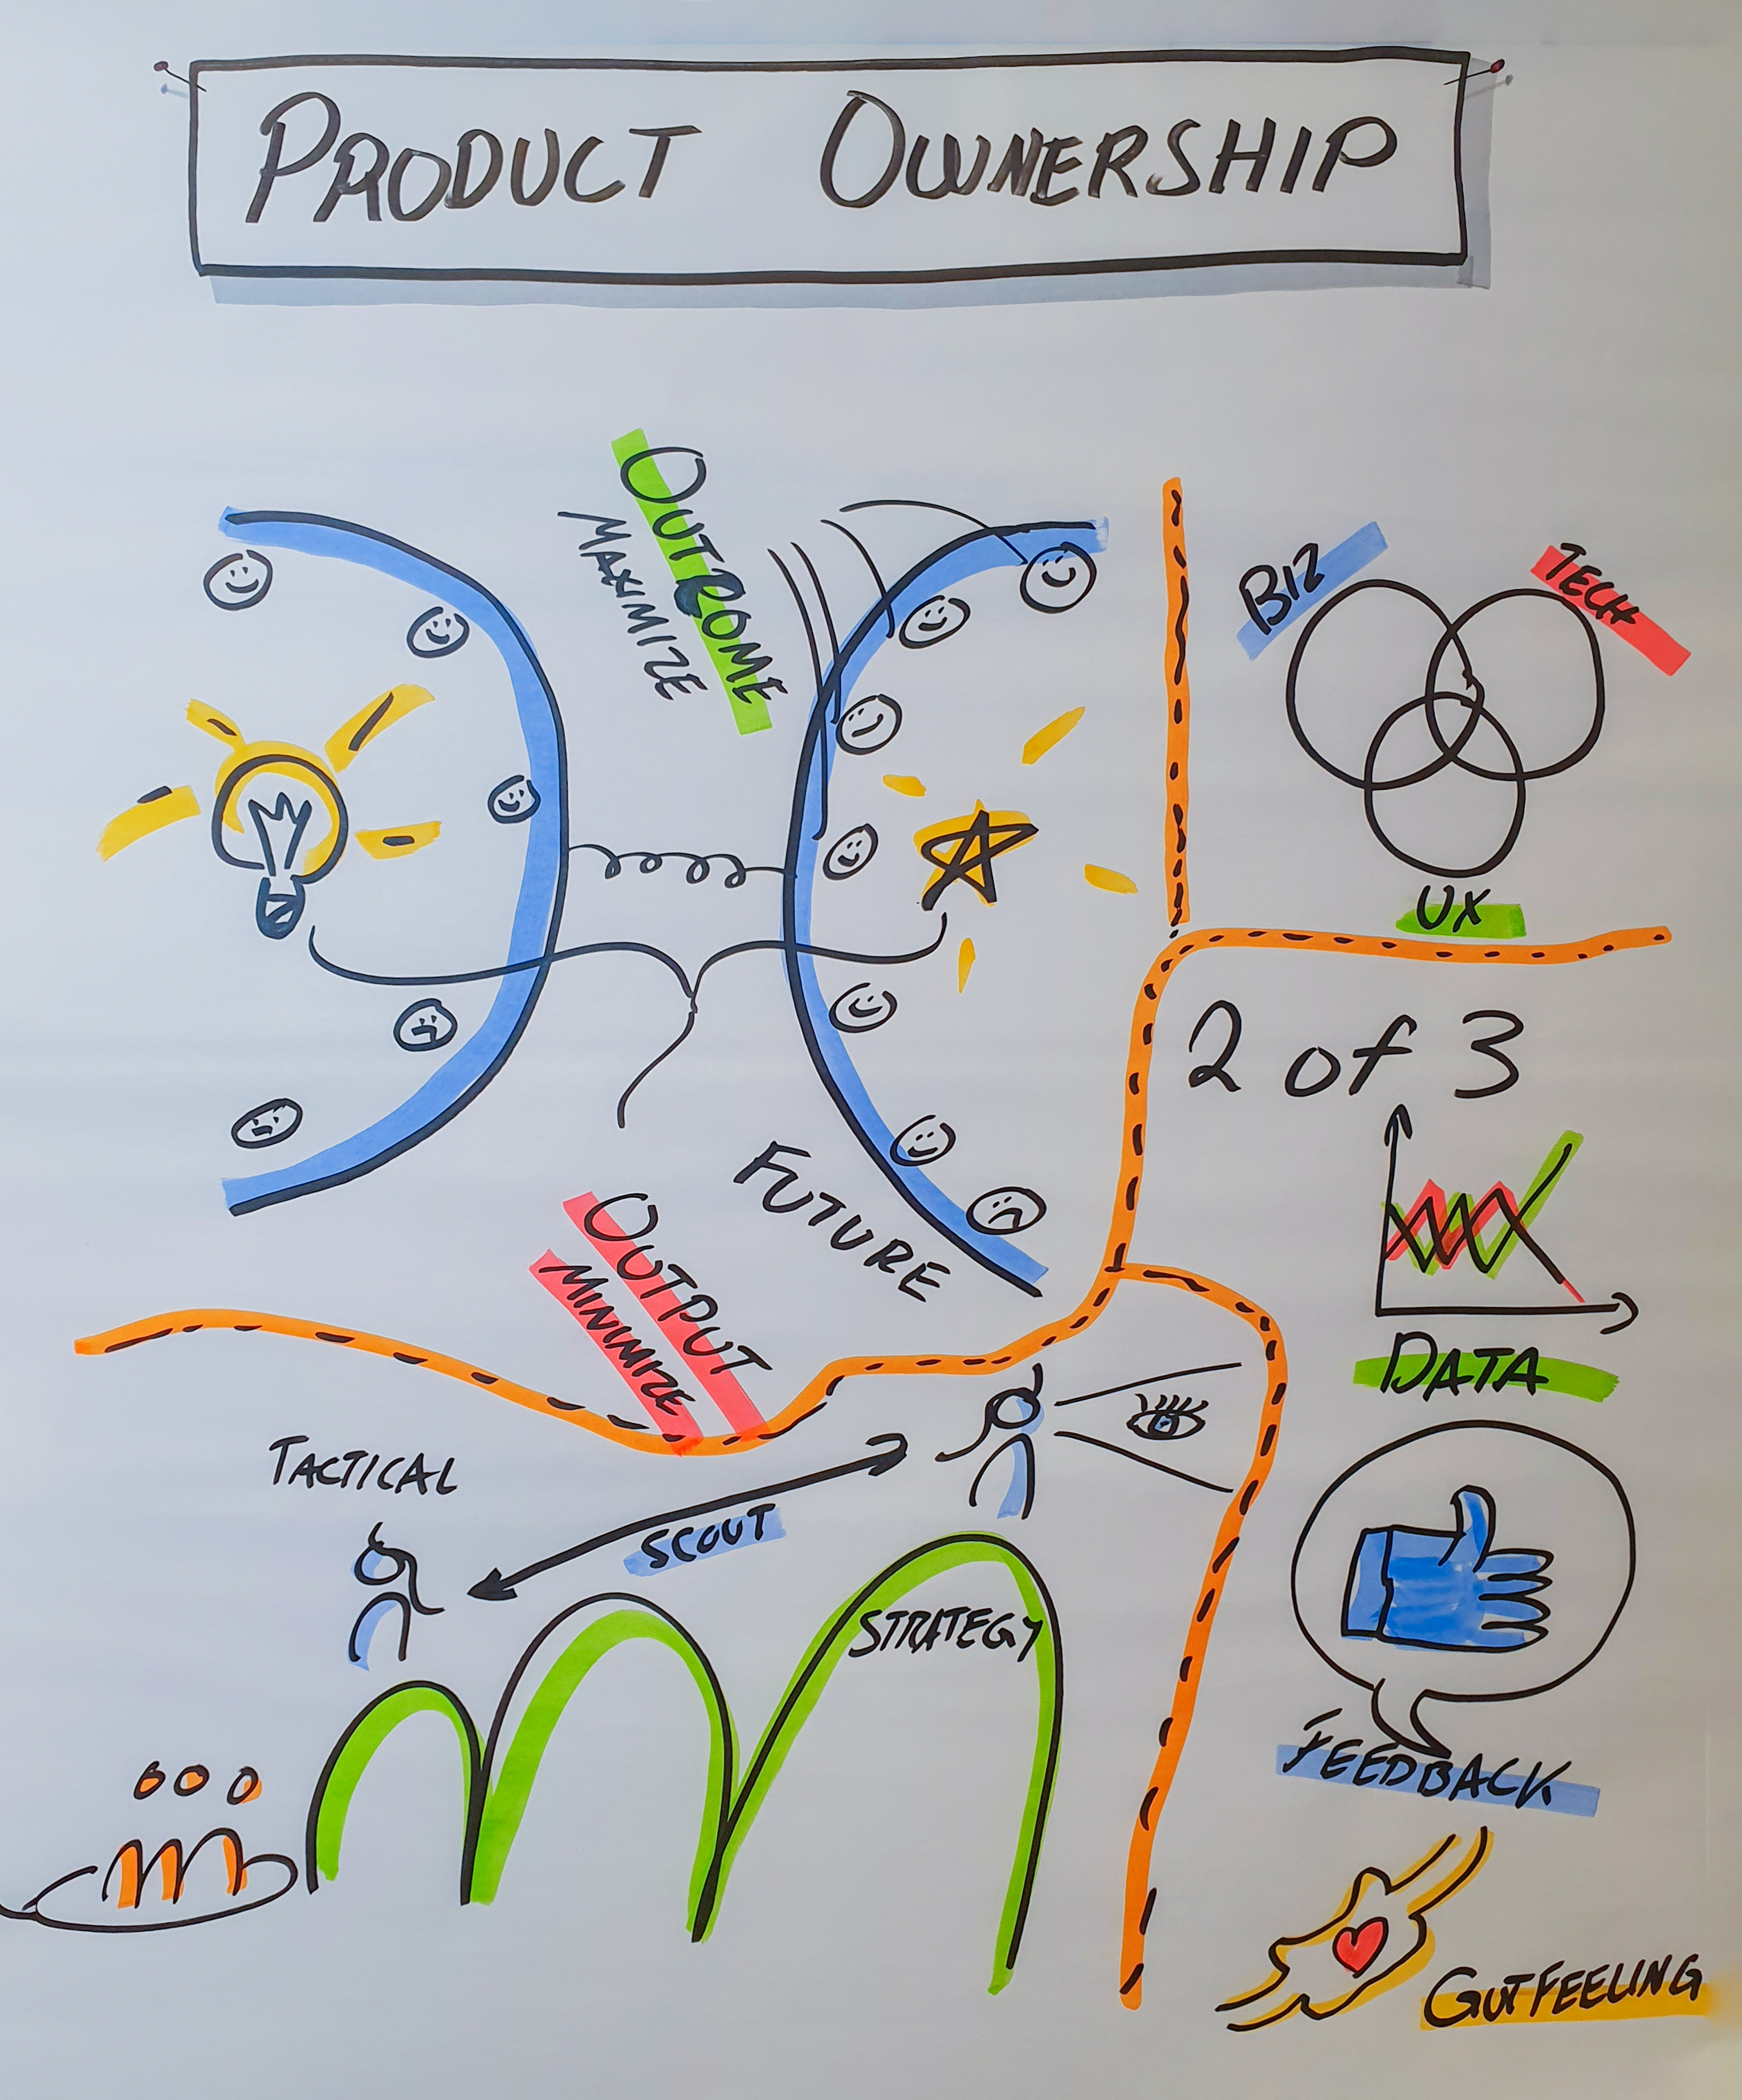 PRODUCT OWNERSHIP
OUTCOME
MAXIMIZE
FUTURE
OUTPUT
MINIMIZE
BIZ
TECH
UX
2 of 3
DATA
FEEDBACK
GUTFEELING
TACTICAL
SCOUT
STRATEGY